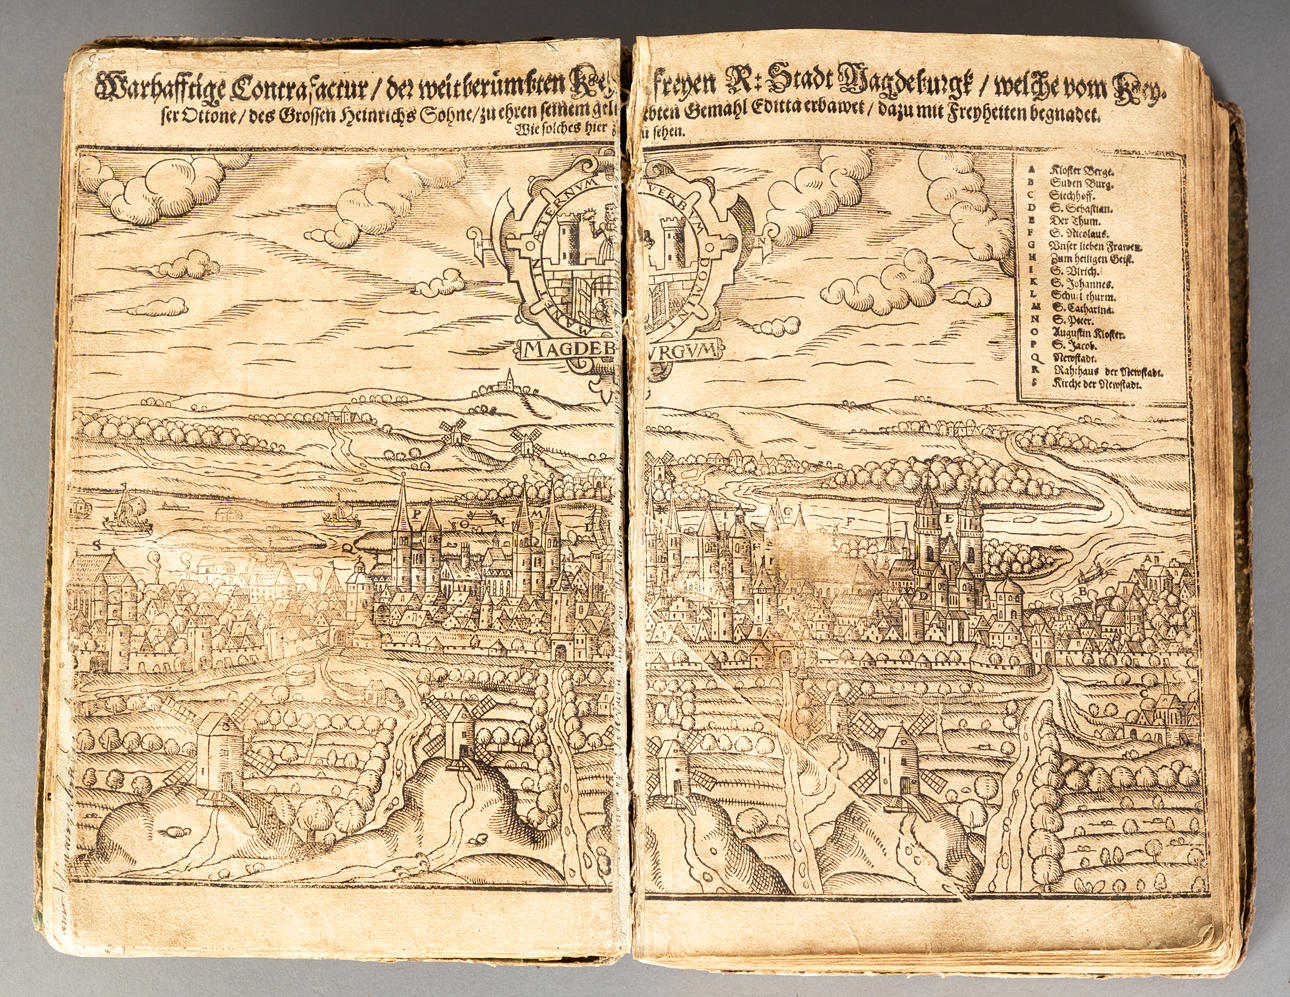 Warhafftige Contrafactur / der weitberümbten Key freyen R: Stadt Magdeburgk / welche vom Key-
ser Ottone / des Grossen Heinrichs Sohne / zu ehren seinem gelibten Gemahl Editta erbawet / dazu mit Freyheiten begnadet.
Wie solches hier zu sehen.
VERBVM DOMINI MANET IN ÆTERNVM
MAGDEBVRGVM
A Kloster Berge.
B Suden Burg.
C Siechhoff.
D S. Sebastian.
E Der Thum.
F S. Nicolaus.
G Vnser lieben Frawen.
H Zum heiligen Geist.
I S. Vlrich.
K S. Johannes.
L Schul thurm.
M S. Catharina.
N S. Peter.
O Augustin Kloster.
P S. Jacob.
Q Newstadt.
R Rahthaus der Newstadt.
S Kirche der Newstadt.
P O N M
I G F E
S Q
D A B